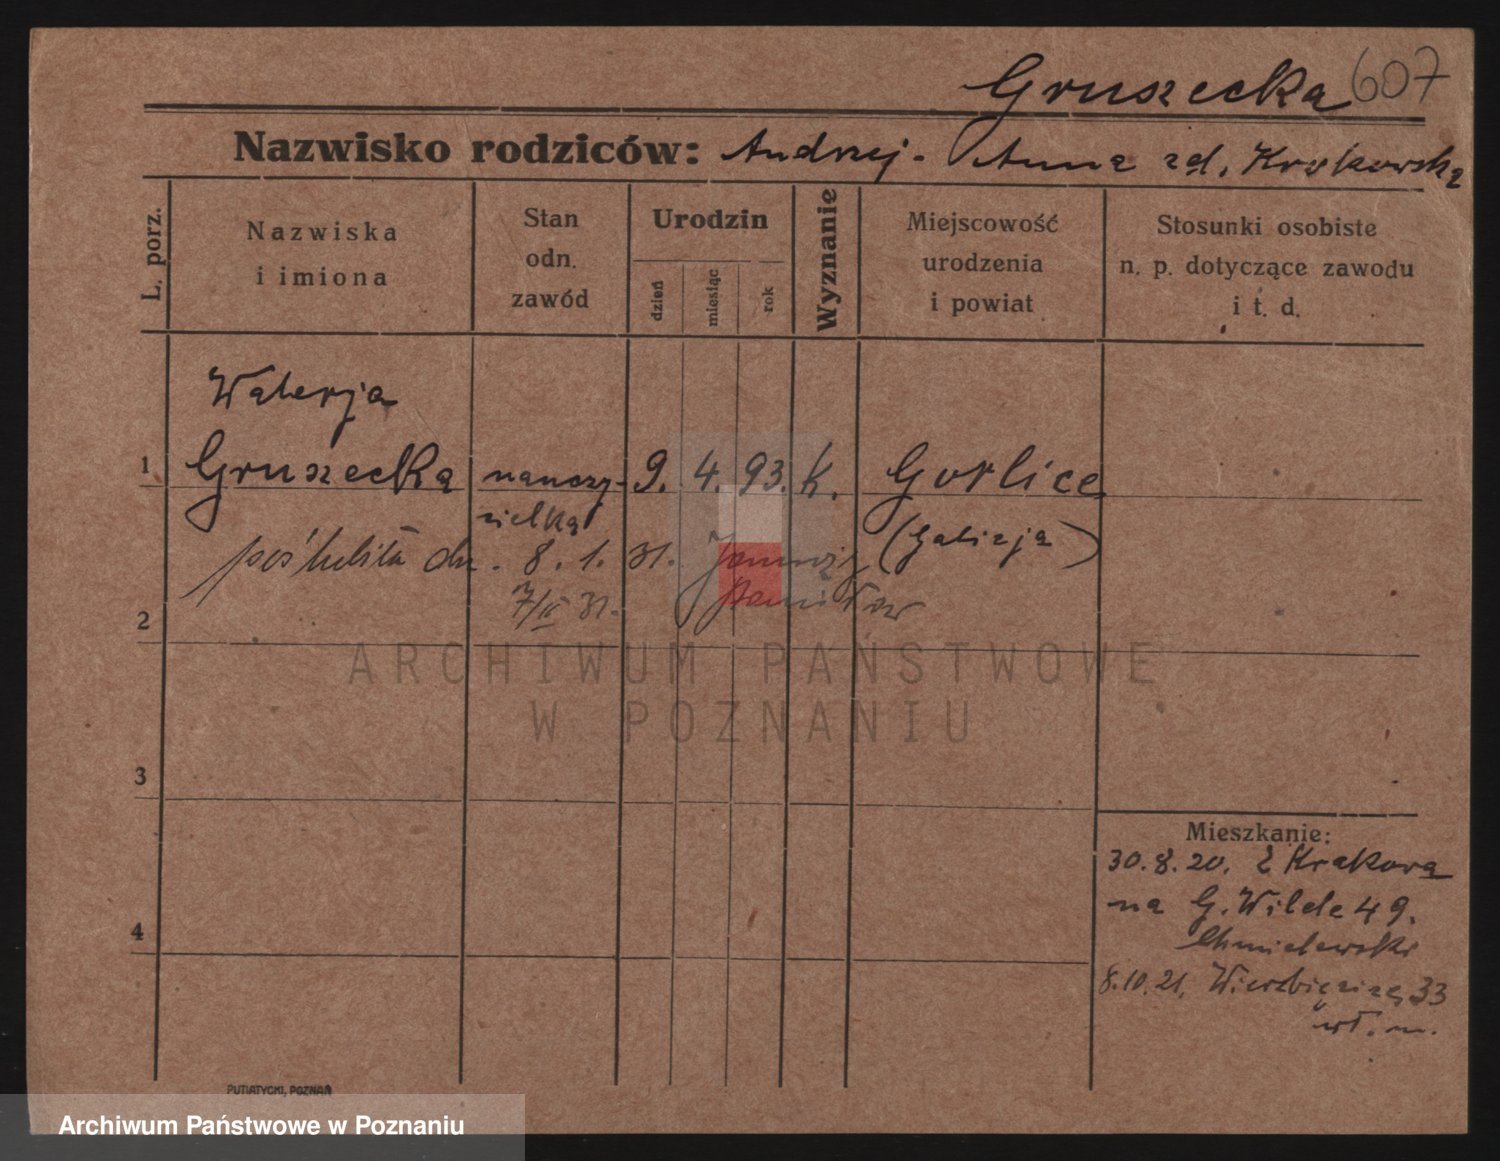 Gruszecka 607
Nazwisko rodziców: Andrzej - Anna zd. Krokowska
L. porz.
Nazwiska
i imiona
Stan
odn.
zawód
Urodzin
dzień
miesiąc
rok
Wyznanie
Miejscowość
urodzenia
i powiat
Stosunki osobiste
n. p. dotyczące zawodu
i t. d.
Walerja
1 Gruszecka nauczy- 9. 4. 93. k. Gorlice
cielka (Galicja)
poślubiła dn. 8. 1. 31.
7/II 31.
2
ARCHIWUM PAŃSTWOWE
W POZNANIU
3
4
Mieszkanie:
30.8.20. z Krakowa
na G. Wilde 49.
Chmielewski
8.10.21. Wierzbięcice 33
wł. m.
PUTIATYCKI, POZNAŃ
Archiwum Państwowe w Poznaniu